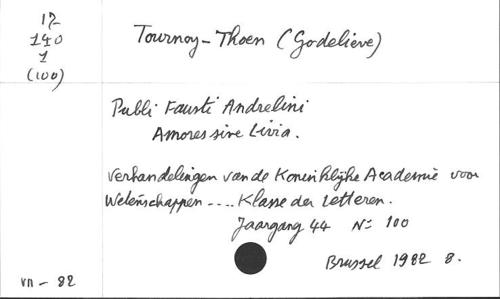 17
140
1
(100)
Tournoy-Thoen (Godelieve)
Publi Fausti Andrelini
Amores sive Livia.
Verhandelingen van de Koninklijke Academie voor
Wetenschappen .... Klasse der Letteren.
Jaargang 44 Nr 100
Brussel 1982 8.
VII - 82